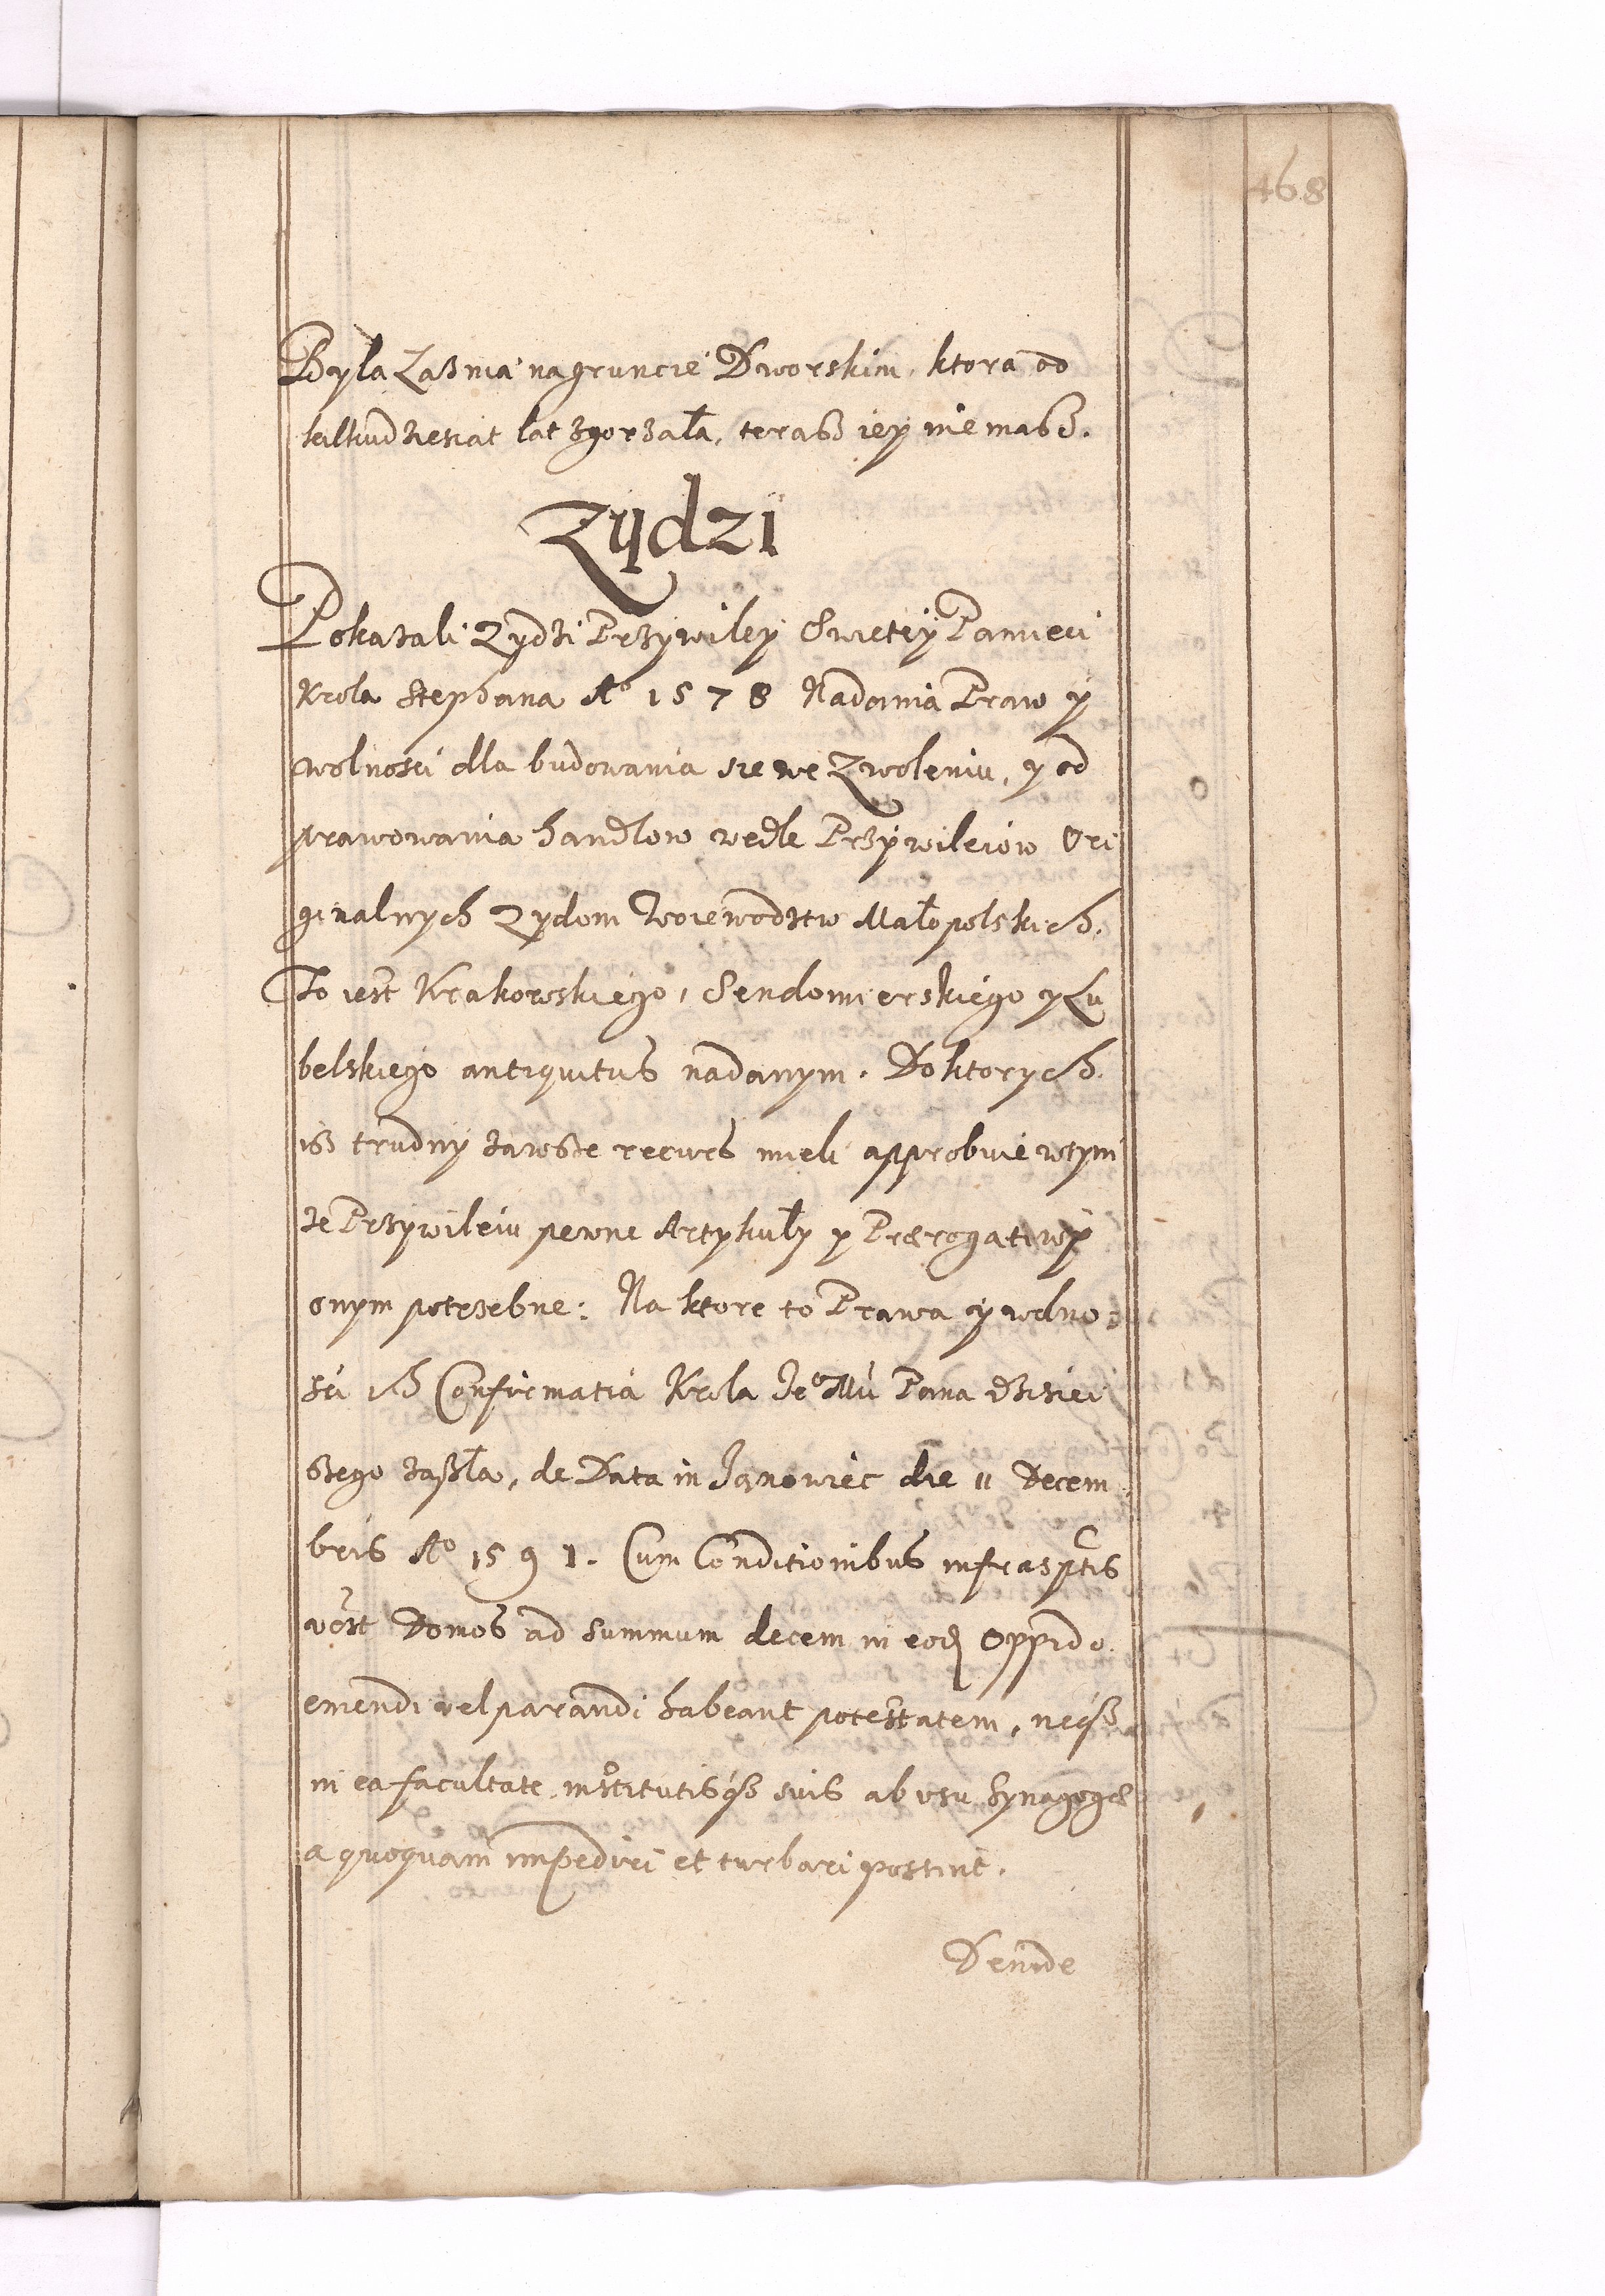 468
Była Łaznia na gruncie Dworskim, ktora od
kilkudziesiat lat zgorzała, terasz iey nie masz.
Zydzi
Pokazali Zydzi Przywiley Swietey Pamieci
Krola Stephana Aº 1578 Nadania Praw y
wolnosci dla budowania sie we Zwoleniu, y od
prawowania handlow wedle Przywileiow Ori
ginalnych Zydom Woiewodztw Małopolskich.
To iest Krakowskiego, Sendomierskiego y Lu
belskiego antiquitus nadanym. Do ktorych
isz trudny zawsze recurs mieli approbuie wtym
ze Przywileiu pewne Artykuły y Prærogatiwy
onym potrzebne: Na ktore to Prawa y wolno:
sci ich Confirmatia Krola Jeº Mći Pana dzisiei
szego zaszła, de Data in Janowiec die 11 Decem
bris Aº 1591. Cum Conditionibus infrasptis
vt Domos ad summum decem in eod Oppido
emendi vel parandi habeant potestatem, neqз
in ea facultate, institutisqз suis ab vsu Synagogæ
a quoquam impediri et turbari possint.
Deinde